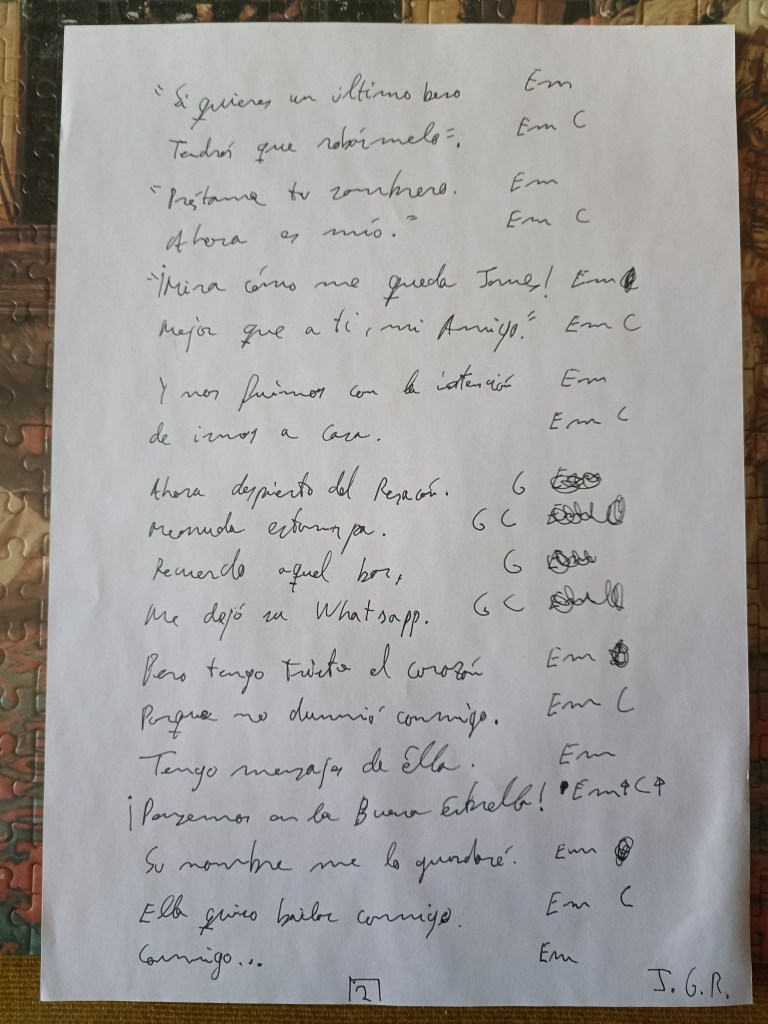 "Si quieres un último beso Em
Tendrás que robármelo". Em C
"Préstame tu sombrero. Em
Ahora es mío." Em C
"¡Mira cómo me queda James! Em
Mejor que a ti, mi Amigo." Em C
Y nos fuimos con la intención Em
de irnos a casa. Em C
Ahora despierto del Resacón. G
Menuda estampa. G C
Recuerdo aquel bar, G
Me dejó su Whatsapp. G C
Pero tengo triste el corazón Em
Porque no durmió conmigo. Em C
Tengo mensajes de Ella. Em
¡ en la Buena Estrella! Em↑C↑
Su nombre me lo guardaré. Em
Ella quiso bailar conmigo. Em C
Conmigo... Em
2
J. G. R.